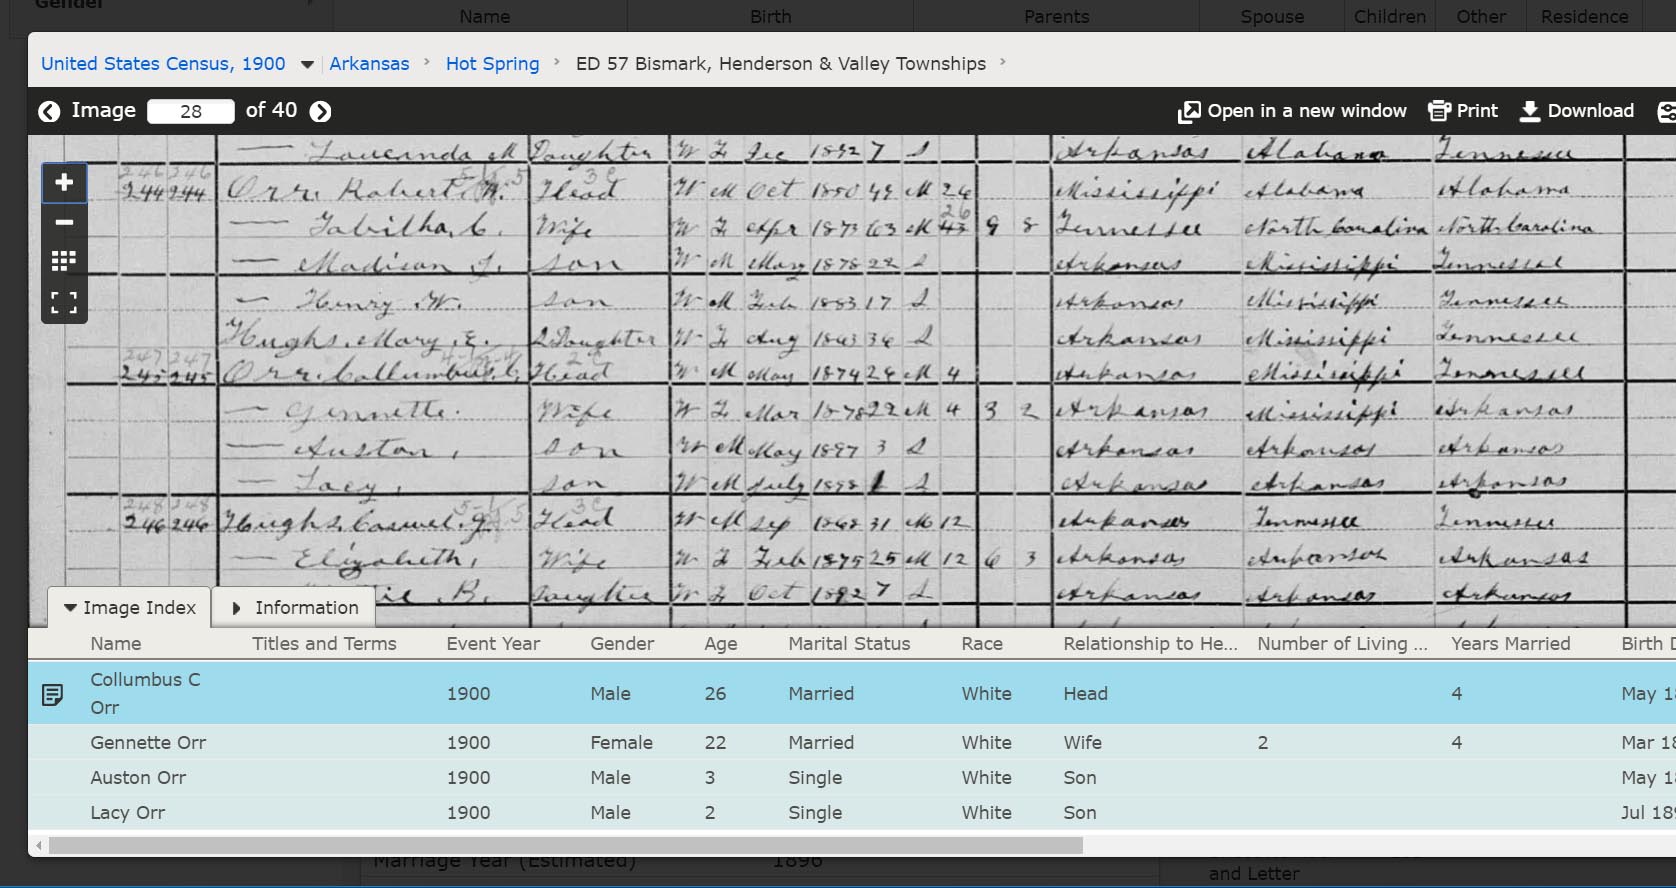 Gender
Name Birth Parents Spouse Children Other Residence
United States Census, 1900 Arkansas › Hot Spring › ED 57 Bismark, Henderson & Valley Townships ›
Image 28 of 40 Open in a new window Print Download
— Loucanda M Daughter W F Dec 1892 7 S Arkansas Alabama Tennessee
246 246
244 244 Orr, Robert W. Head W M Oct 1850 49 M 26 Mississippi Alabama Alabama
— Tabitha, C. Wife W F Apr 63 M 26 9 8 Tennessee North Carolina North Carolina
— Madison J. Son W M May 1878 22 S Arkansas Mississippi Tennessee
— Henry W. Son W M Feb 1883 17 S Arkansas Mississippi Tennessee
Hughs, Mary, E. Daughter W F Aug 1863 36 S Arkansas Mississippi Tennessee
247 247
245 245 Orr, Collumbus, C. Head W M May 1874 26 M 4 Arkansas Mississippi Tennessee
— Gennette. Wife W F Mar 1878 22 M 4 3 2 Arkansas Mississippi Arkansas
— Auston, Son W M May 1897 3 S Arkansas Arkansas Arkansas
— Lacy, Son W M July 1898 1 S Arkansas Arkansas Arkansas
248 248
246 246 Hughs, Caswel. J. Head W M Sep 1868 31 M 12 Arkansas Tennessee Tennessee
— Elizabeth, Wife W F Feb 1875 25 M 12 6 3 Arkansas Arkansas Arkansas
B. Daughter W F Oct 1892 7 S Arkansas Arkansas Arkansas
Image Index Information
Name Titles and Terms Event Year Gender Age Marital Status Race Relationship to He... Number of Living ... Years Married Birth D
Collumbus C
Orr 1900 Male 26 Married White Head 4 May 18
Gennette Orr 1900 Female 22 Married White Wife 2 4 Mar 18
Auston Orr 1900 Male 3 Single White Son May 18
Lacy Orr 1900 Male 2 Single White Son Jul 189
Marriage Year (Estimated) 1896
and Letter